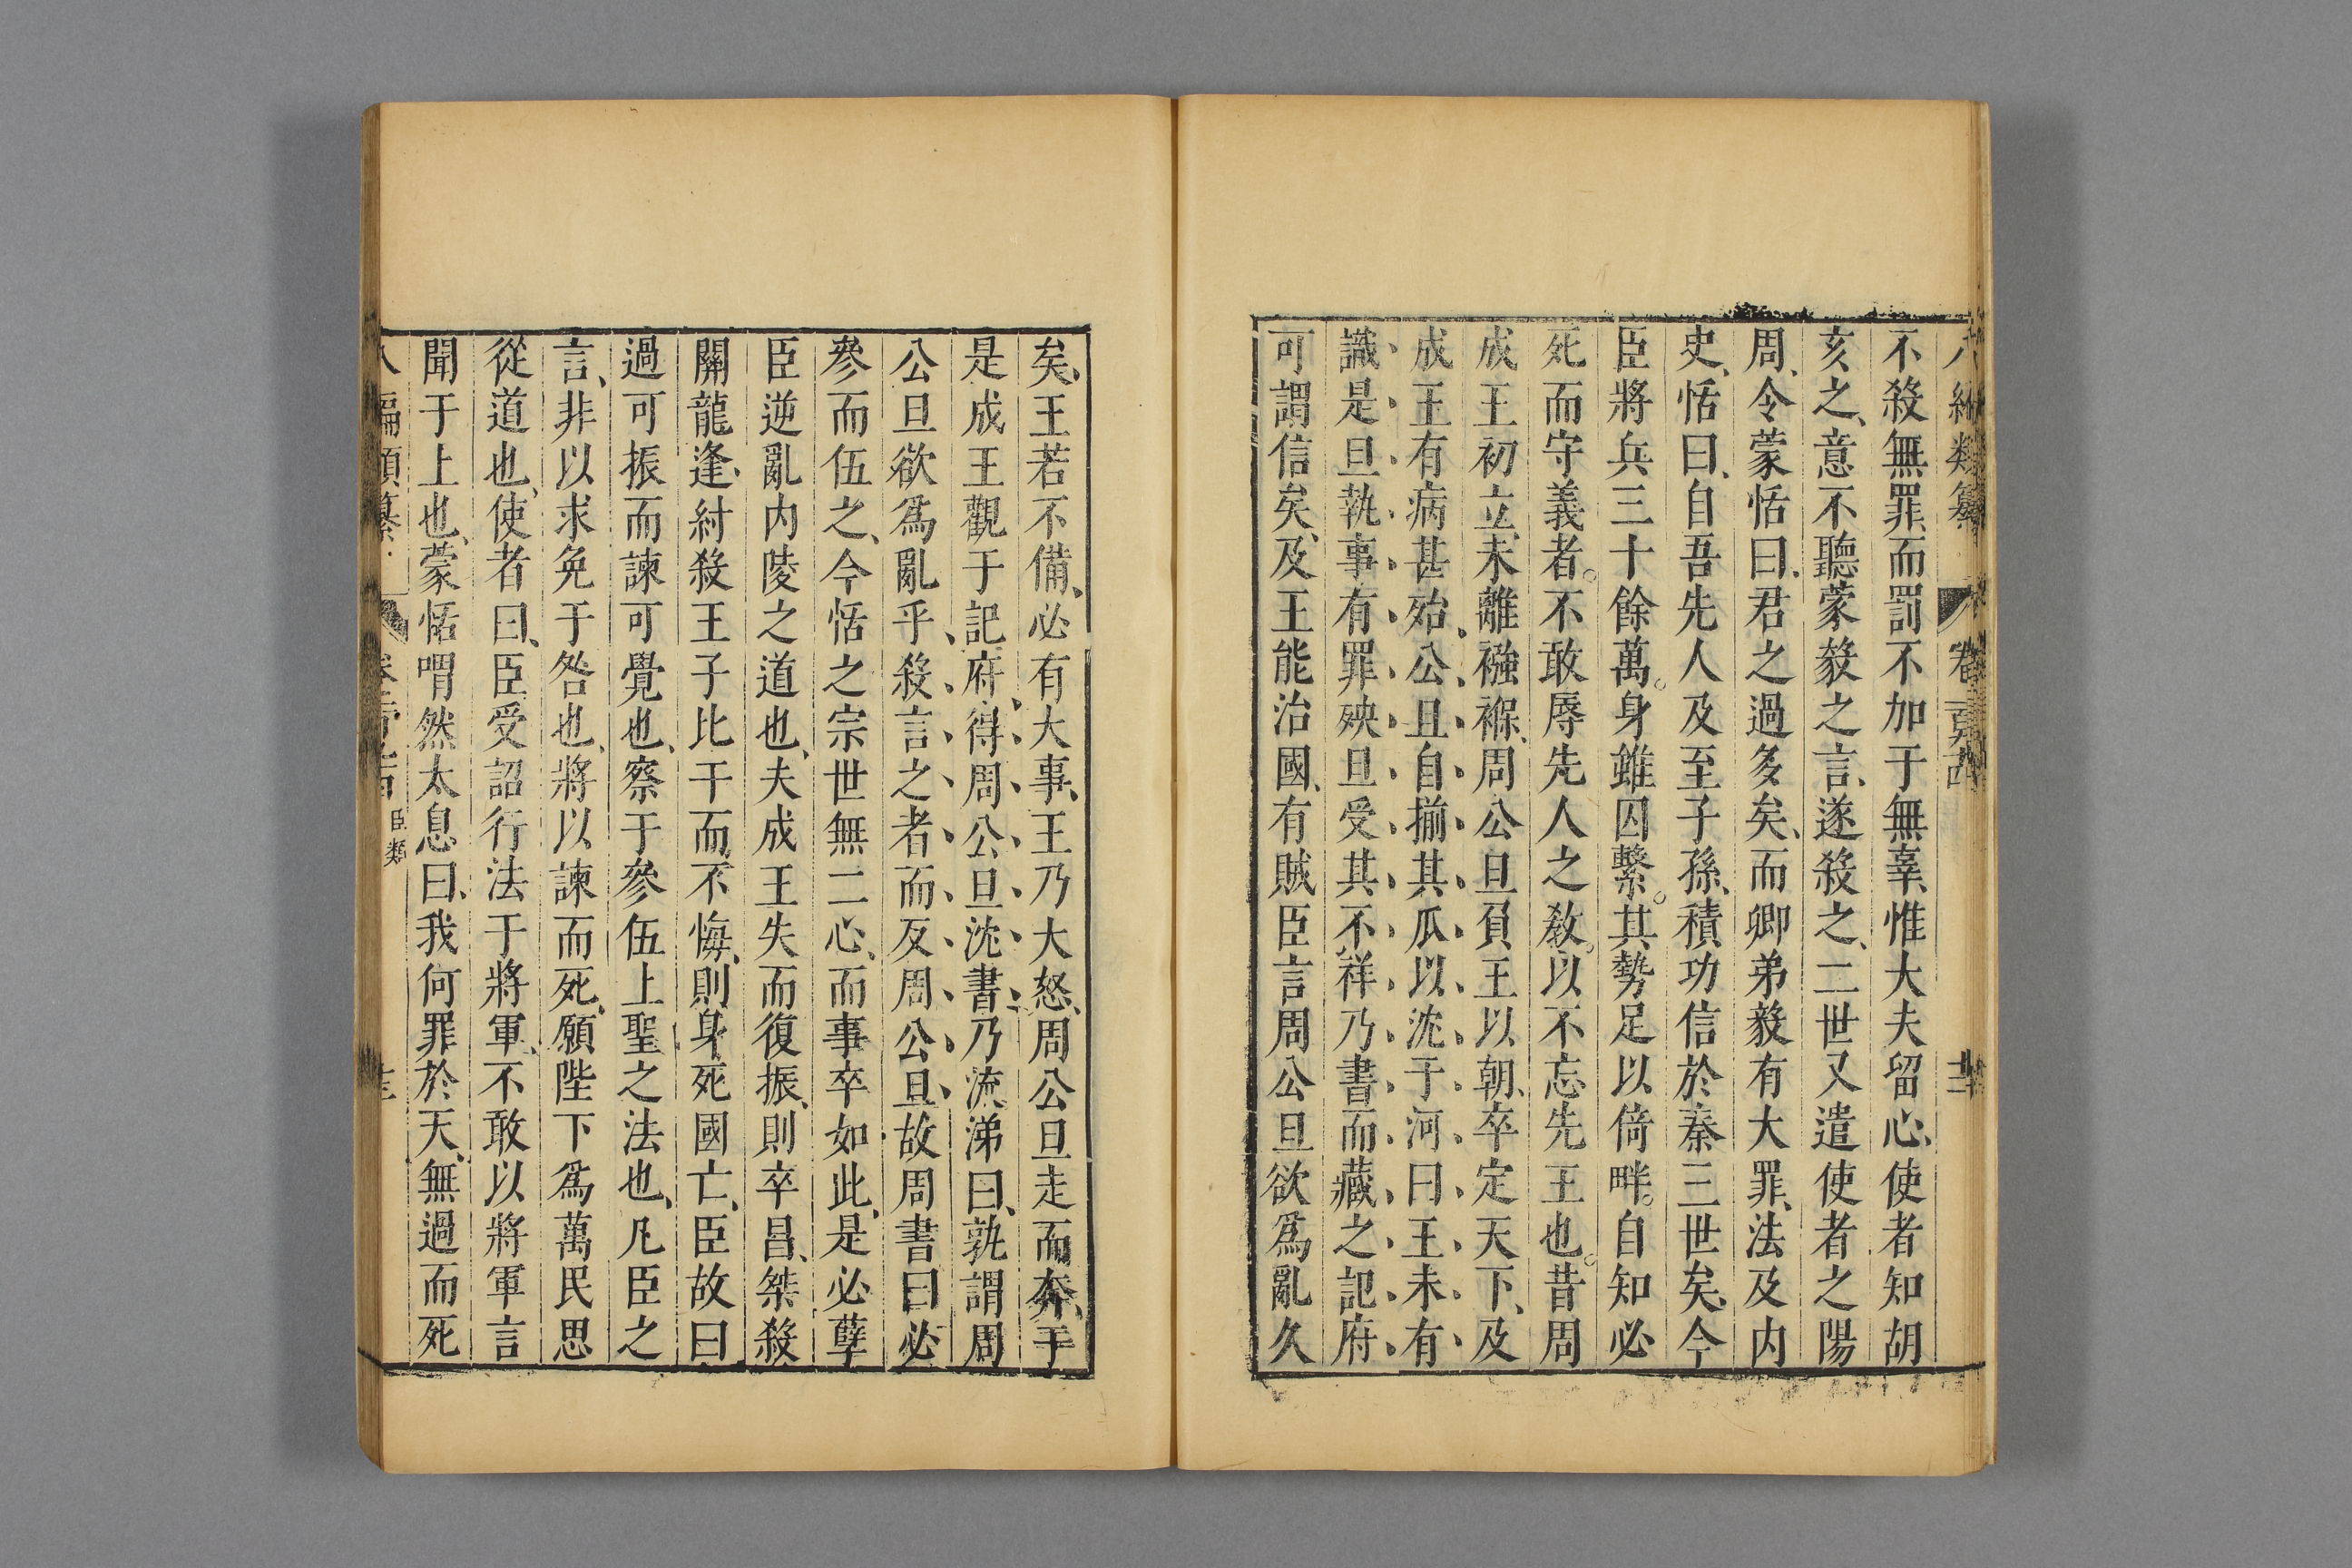 不殺無罪、而罰不加于無辜、惟大夫留心、使者知胡
亥之、意不聽蒙毅之言、遂殺之、二世又遣使者之陽
周、令蒙恬曰、君之過多矣、而卿弟毅有大罪、法及内
史、恬曰、自吾先人及至子孫、積功信於秦三世矣、今
臣將兵三十餘萬。身雖囚繫。其勢足以倍畔。自知必
死而守義者。不敢辱先人之敎。以不忘先王也。昔周
成王初立、未離襁褓、周公旦負王以朝、卒定天下、及
成王有病甚殆、公旦自揃其爪以沈于河曰王未有
識是旦執事有罪殃旦受其不祥乃書而藏之記府、
可謂信矣、及王能治國、有賊臣言周公旦欲爲亂久
矣、王若不備、必有大事、王乃大怒、周公旦走而奔、于
是成王觀于記府、得周公旦沈書乃流涕曰、孰謂周
公旦欲爲亂乎、殺言之者而反周公旦、故周書曰必
參而伍之、今恬之宗世無二心、而事卒如此、是必孽
臣逆亂内陵之道也、夫成王失而復振、則卒昌、桀殺
關龍逢、紂殺王子比干而不悔、則身死國亡、臣故曰
過可振而諫可覺也、察于參伍上聖之法也、凡臣之
言、非以求免于咎也、將以諫而死、願陛下爲萬民思
從道也、使者曰、臣受詔行法于將軍、不敢以將軍言
聞于上也、蒙恬喟然太息曰、我何罪於天、無過而死
臣類